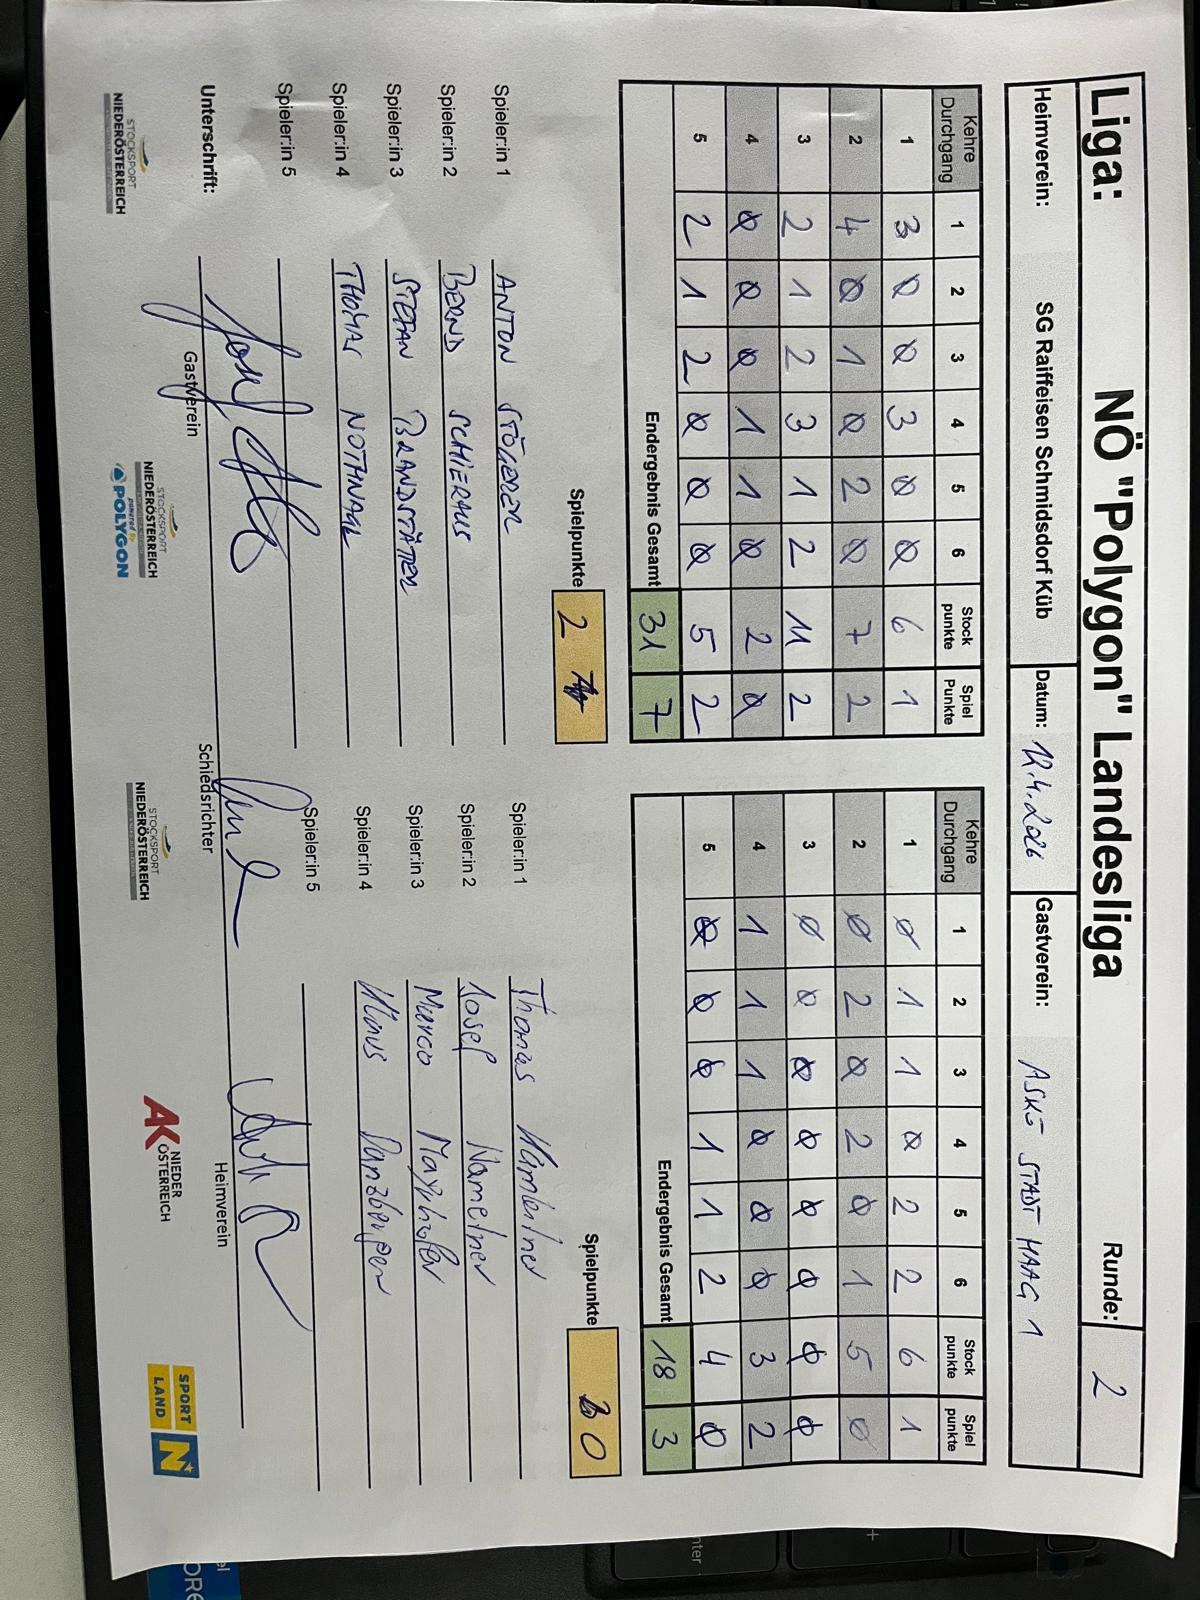 Liga: NÖ "Polygon" Landesliga Runde: 2
Heimverein: SG Raiffeisen Schmidsdorf Küb Datum: 12.4.2026 Gastverein: ASKÖ STADT HAAG 1
Kehre Durchgang 1 2 3 4 5 6 Stock punkte Spiel Punkte
1 3 0 0 3 0 0 6 1
2 4 0 1 0 2 0 7 2
3 2 1 2 3 1 2 11 2
4 0 0 0 1 1 0 2 0
5 2 1 2 0 0 0 5 2
Endergebnis Gesamt 31 7
Spielpunkte 2
Kehre Durchgang 1 2 3 4 5 6 Stock punkte Spiel punkte
1 0 1 1 0 2 2 6 1
2 0 2 0 2 0 1 5 0
3 0 0 0 0 0 0 0 0
4 1 1 1 0 0 0 3 2
5 0 0 0 1 1 2 4 0
Endergebnis Gesamt 18 3
Spielpunkte 0
Spieler:in 1 ANTON
Spieler:in 2 BERND SCHIERAUS
Spieler:in 3 STEFAN BRANDSTÄTTER
Spieler:in 4 THOMAS NOTHNAGL
Spieler:in 5
Spieler:in 1 Thomas
Spieler:in 2 Josef
Spieler:in 3 Marco Mayrhofer
Spieler:in 4 Klaus Danzberger
Spieler:in 5
Unterschrift:
Gastverein Schiedsrichter Heimverein
STOCKSPORT NIEDERÖSTERREICH
STOCKSPORT NIEDERÖSTERREICH powered by POLYGON
STOCKSPORT NIEDERÖSTERREICH
AK NIEDER ÖSTERREICH
SPORT LAND N